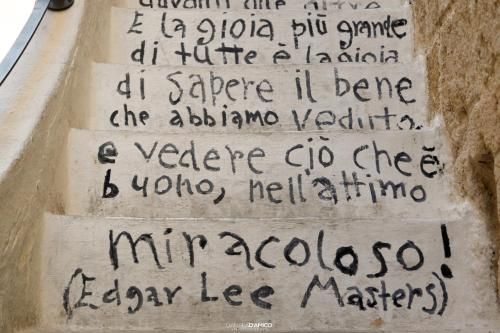 davanti alle altre
E la gioia più grande
di tutte è la gioia
di sapere il bene
che abbiamo veduto,
e vedere ciò che è
buono, nell'attimo
miracoloso!
(Edgar Lee Masters)
DANIELA D'AMICO